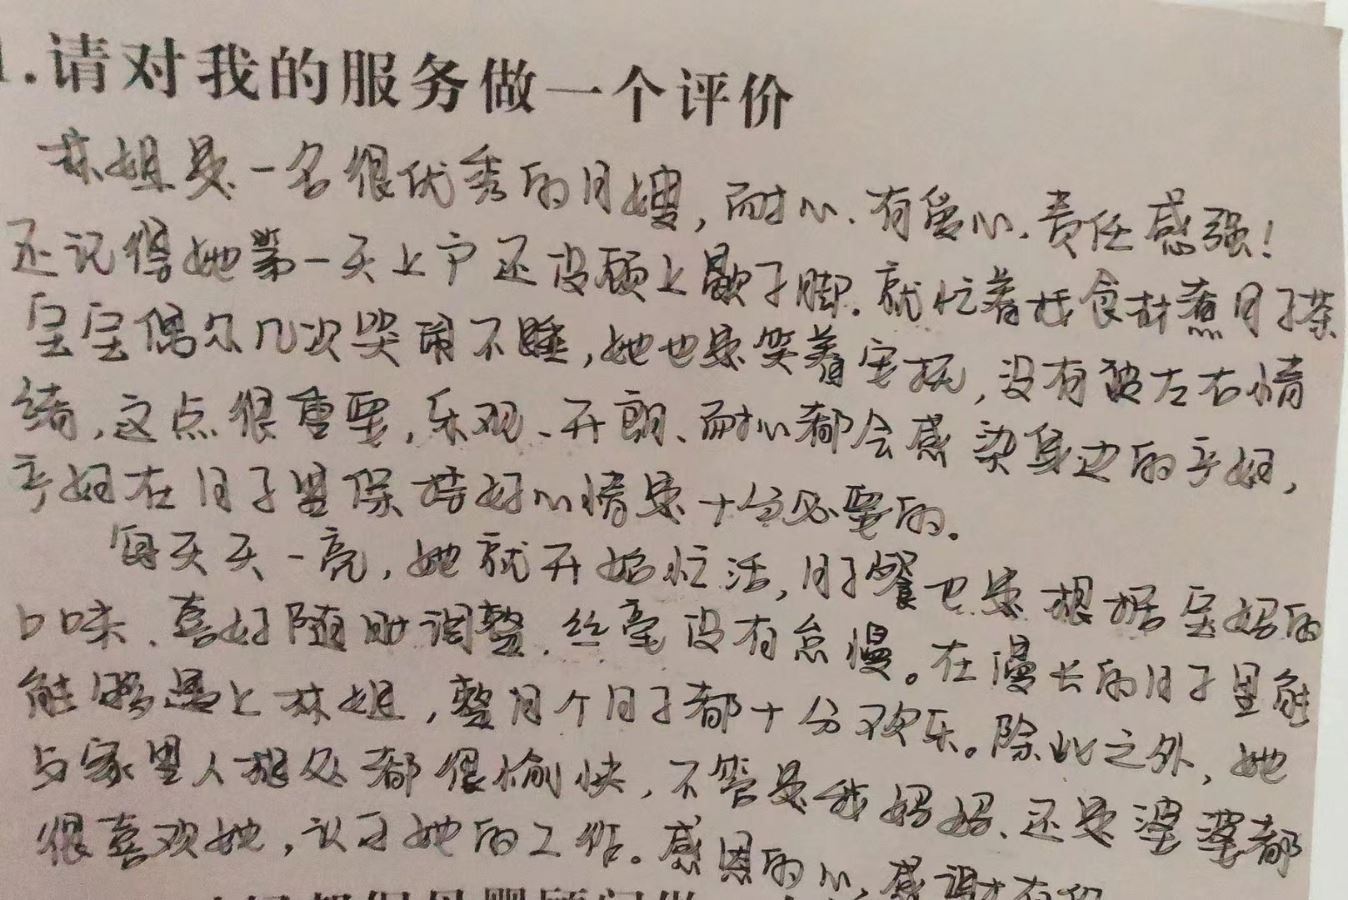 1.请对我的服务做一个评价
林姐是一名很优秀的月嫂，耐心、有爱心、责任感强！
还记得她第一天上户还没顾上歇下脚、就忙着找食材煮月子茶
宝宝偶尔几次哭闹不睡，她也是笑着安抚，没有被左右情
绪，这点很重要，乐观、开朗、耐心都会感染身边的产妇，
产妇在月子里保持好心情是十分必要的。
每天天一亮，她就开始忙活，月子餐也是根据宝妈的
口味、喜好随时调整、丝毫没有怠慢。在漫长的月子里能
能够遇上林姐，整月个月子都十分欢乐。除此之外，她
与家里人相处都很愉快，不管是我妈妈、还是婆婆都
很喜欢她，认可她的工作。感恩的心，感谢有你